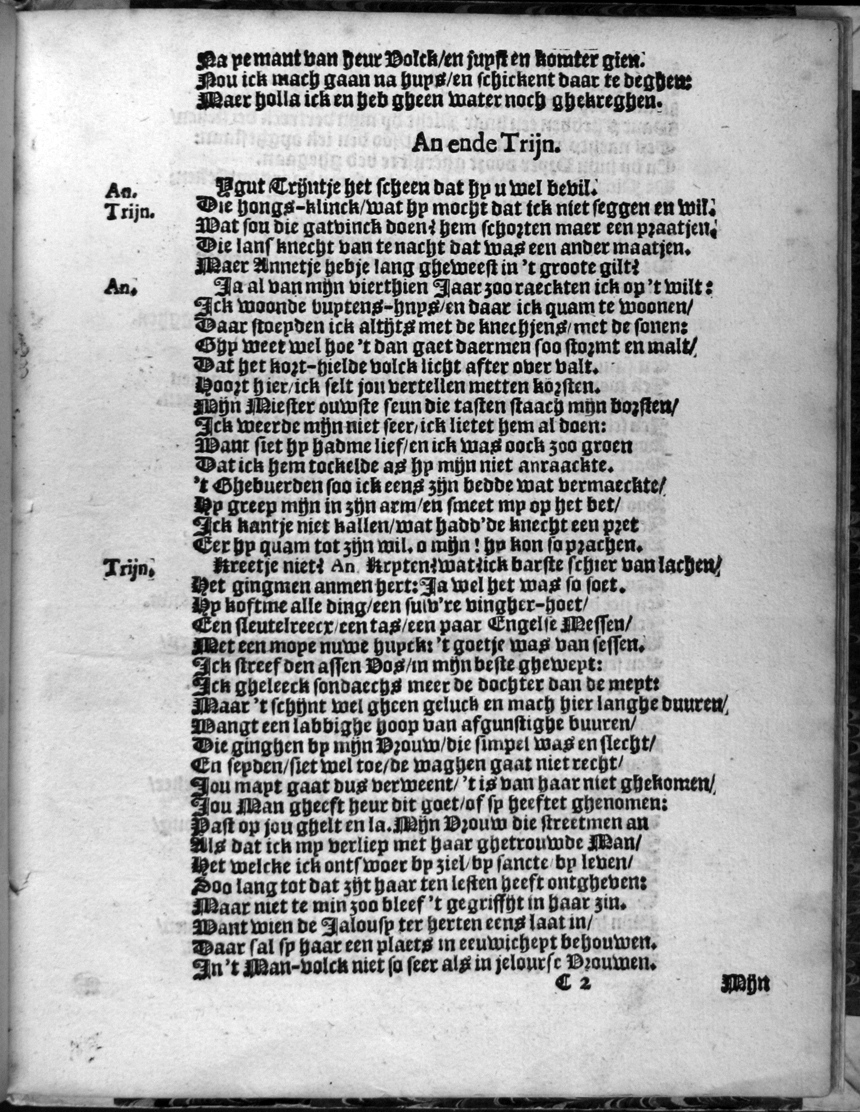 Na yemant van heur Volck/en juyst en komter gien.
Nou ick mach gaan na huys/en schickent daar te deghen:
Maer holla ick en heb gheen water noch ghekreghen.
An ende Trijn.
An. Ygut Trijntje het scheen dat hy u wel bevil.
Trijn. Die hongs-klinck/wat hy mocht dat ick niet seggen en wil.
Wat sou die gatvinck doen? hem schorten maer een praatjen.
Die lans knecht van te nacht dat was een ander maatjen.
Maer Annetje hebje lang gheweest in 't groote gilt?
An. Ja al van mijn vierthien Jaar zoo raeckten ick op 't wilt:
Ick woonde buytens-huys/en daar ick quam te woonen/
Daar stoeyden ick altijts met de knechjens/met de sonen:
Ghy weet wel hoe 't dan gaet daermen soo stormt en malt/
Dat het kort-hielde volck licht after over valt.
Hoort hier/ick selt jou vertellen metten korsten.
Mijn Miester ouwste seun die tasten staach mijn borsten/
Ick weerde mijn niet seer/ick lietet hem al doen:
Want siet hy hadme lief/en ick was oock zoo groen
Dat ick hem tockelde as hy mijn niet anraackte.
't Ghebuerden soo ick eens zijn bedde wat vermaeckte/
Hy greep mijn in zijn arm/en smeet my op het bet/
Ick kantje niet kallen/wat hadd'de knecht een pret
Eer hy quam tot zijn wil. o mijn! hy kon so prachen.
Trijn. Kreetje niet? An. Kryten? wat? ick barste schier van lachen/
Het gingmen anmen hert: Ja wel het was so soet.
Hy koftme alle ding/een suiv're vingher-hoet/
Een sleutelreecx/een tas/een paar Engelse Messen/
Met een mope nuwe huyck: 't goetje was van sessen.
Ick streef den assen Vos/in mijn beste gheweyt:
Ick gheleeck sondaechs meer de dochter dan de meyt:
Maar 't schijnt wel gheen geluck en mach hier langhe duuren/
Wangt een labbighe hoop van afgunstighe buuren/
Die ginghen by mijn Vrouw/die simpel was en slecht/
En seyden/siet wel toe/de waghen gaat niet recht/
Jou mayt gaat dus verweent/'t is van haar niet ghekomen/
Jou Man gheeft heur dit goet/of sy heeftet ghenomen:
Past op jou ghelt en la. Mijn Vrouw die streetmen an
Als dat ick my verliep met haar ghetrouwde Man/
Het welcke ick ontswoer by ziel/by sancte/by leven/
Soo lang tot dat zijt haar ten lesten heeft ontgheven:
Maar niet te min zoo bleef 't gegriffijt in haar zin.
Want wien de Jalousy ter herten eens laat in/
Daar sal sy haar een plaets in eeuwicheyt behouwen.
In 't Man-volck niet so seer als in jelourse Vrouwen.
C 2 Mijn